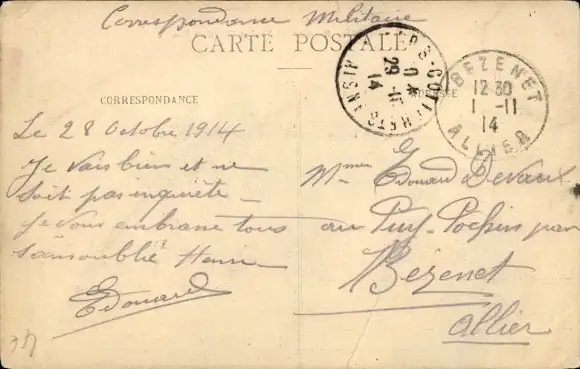 Correspondance Militaire
CARTE POSTALE
CORRESPONDANCE
Le 28 Octobre 1914
Je vais bien et ne
soit pas enquiète -
Je vous embrasse tous
sans oublié
Edouard
29 - 10
14
BEZENET
12 30
1 - 11
14
ALLIER
Mme Edouard Devaux
au Puy-Pochin par
Bézenet
Allier